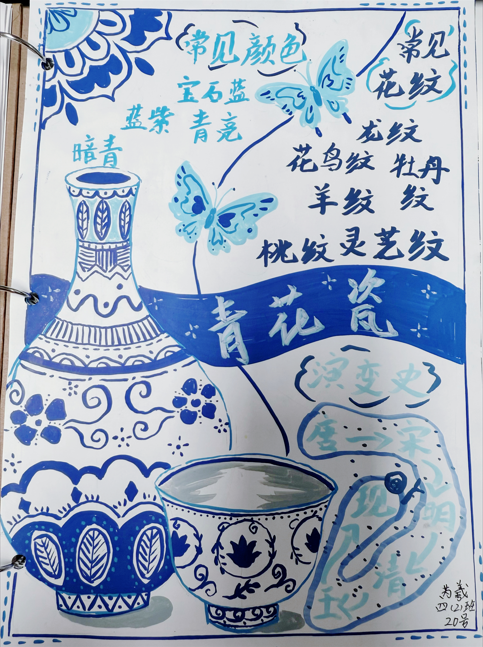 常见颜色
宝石蓝
蓝紫 青亮
暗青
常见
花纹
龙纹
花鸟纹 牡丹
羊纹 纹
桃纹 灵艺纹
青花瓷
演变史
唐→宋
明
清
现
四(2)班
20号